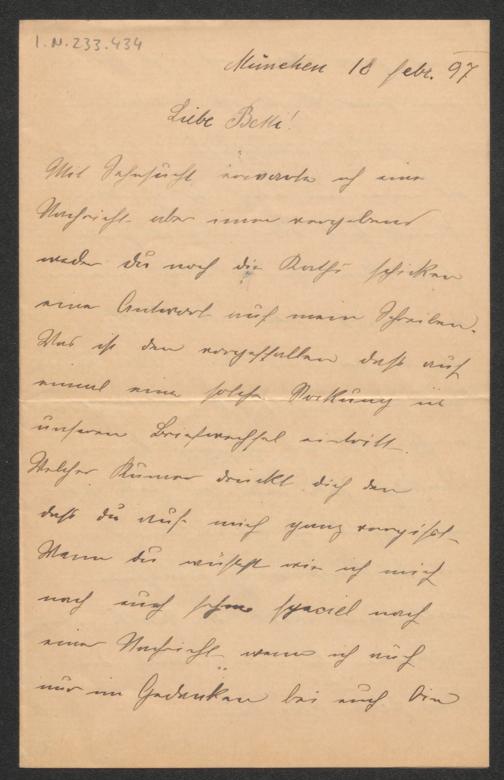 I.N.233.434
München 18 febr. 97
Liebe Betti!
Mit Sehnsucht erwarte ich eine
Nachricht aber imer vergebens
weder du noch die Kathi schicken
eine Antwort auf mein Schreiben.
Was ist den vorgefallen daß auf
einmal eine solche Stockung in
unseren Briefwechsel eintritt.
Welcher Kumer drückt dich den
daß du auf mich ganz vergißt.
Wenn du wüßtest wie ich mich
nach euch sehne speciel nach
einer Nachricht wenn ich auch
nur im Gedanken bei euch bin